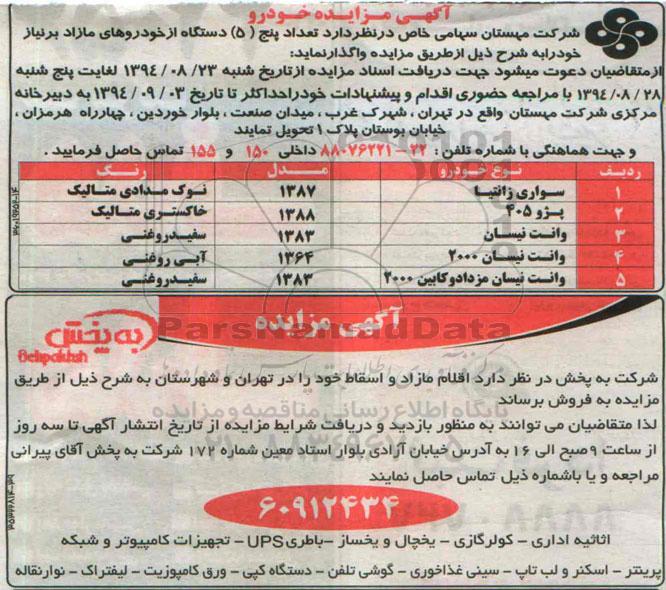 آگهی مزایده خودرو
شرکت مهستان سهامی خاص درنظردارد تعداد پنج ( ۵) دستگاه ازخودروهای مازاد برنیاز
خودرابه شرح ذیل ازطریق مزایده واگذارنماید:
ازمتقاضیان دعوت میشود جهت دریافت اسناد مزایده ازتاریخ شنبه ۲۳/ ۰۸/ ۱۳۹٤ لغایت پنج شنبه
۲۸ /۰۸ /۱۳۹٤ با مراجعه حضوری اقدام و پیشنهادات خودراحداکثر تا تاریخ ۰۳ /۰۹ /۱۳۹٤ به دبیرخانه
مرکزی شرکت مهستان واقع در تهران ، شهرک غرب ، میدان صنعت ، بلوار خوردین ، چهارراه هرمزان ،
خیابان بوستان پلاک ۱ تحویل نمایند
و جهت هماهنگی با شماره تلفن : ۲۲-۸۸۰۷۶۲۲۱ داخلی ۱۵۰ و ۱۵۵ تماس حاصل فرمایید .
ردیف نوع خودرو مدل رنگ
۱ سواری زانتیا ۱۳۸۷ نوک مدادی متالیک
۲ پژو ۴۰۵ ۱۳۸۸ خاکستری متالیک
۳ وانت نیسان ۱۳۸۳ سفیدروغنی
۴ وانت نیسان ۲۰۰۰ ۱۳۶۴ آبی روغنی
۵ وانت نیسان مزدادوکابین ۲۰۰۰ ۱۳۸۳ سفیدروغنی
آگهی مزایده
به پخش
Behpakhsh
ParsNamadData
شرکت به پخش در نظر دارد اقلام مازاد و اسقاط خود را در تهران و شهرستان به شرح ذیل از طریق
مزایده به فروش برساند
پایگاه اطلاع رسانی مناقصه و مزایده
لذا متقاضیان می توانند به منظور بازدید و دریافت شرایط مزایده از تاریخ انتشار آگهی تا سه روز
از ساعت ۹صبح الی ۱۶ به آدرس خیابان آزادی بلوار استاد معین شماره ۱۷۲ شرکت به پخش آقای پیرانی
مراجعه و یا باشماره ذیل تماس حاصل نمایند
۶۰۹۱۲۴۳۴
اثاثیه اداری - کولرگازی - یخچال و یخساز -باطریUPS - تجهیزات کامپیوتر و شبکه
پرینتر - اسکنر و لب تاپ - سینی غذاخوری - گوشی تلفن - دستگاه کپی - ورق کامپوزیت - لیفتراک - نوارنقاله